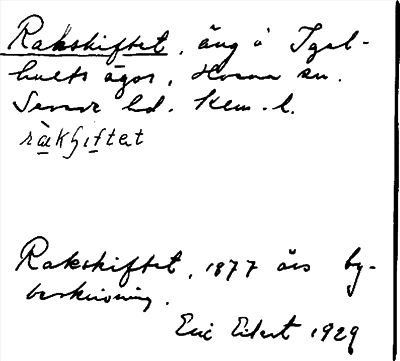 Rakskiftet, äng å Igel-
hults ägor, Hvena sn.
Sevede hd. Kalm. l.
ràkʃiftet
Rakskiftet, 1877 års by-
beskrivning.
Eric Eilert 1929